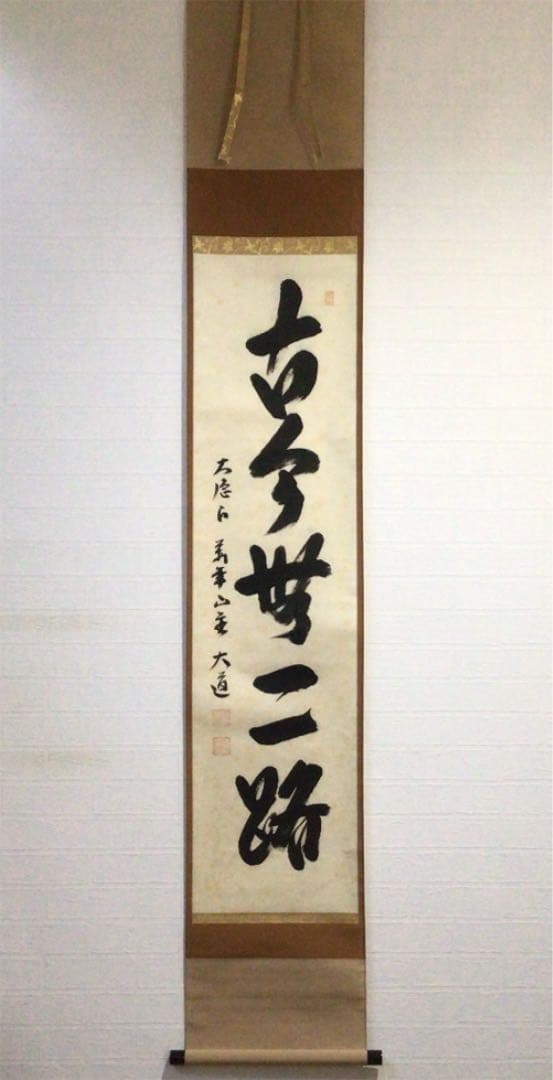 古今無二路
大徳下 萬年山主 大道